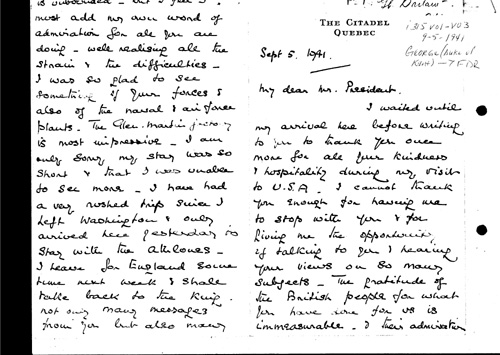 P.S. of Britain
THE CITADEL
QUEBEC
Sept 5. 1941.
9-5-1941
GEORGE (Duke of
Kent) — 7 FDR
My dear Mr. President.
I waited until
my arrival here before writing
to you to thank you once
more for all your kindness
& hospitality during my visit
to U.S.A. I cannot thank
you enough for having me
to stop with you & for
giving me the opportunity
of talking to you & hearing
your views on so many
subjects – The gratitude of
the British people for what
you have done for us is
immeasurable. & their admiration
is unbounded – but I feel I
must add my own word of
admiration for all you are
doing – well realising all the
strain & the difficulties –
I was so glad to see
something of your forces &
also of the naval & air force
plants. The Glen. Martin factory
is most impressive – I am
only sorry my stay was so
short & that I was unable
to see more – I have had
a very rushed trip since I
left Washington & only
arrived here yesterday to
stay with the Athlones –
I leave for England some
time next week & shall
take back to the King.
not only many messages
from you but also many